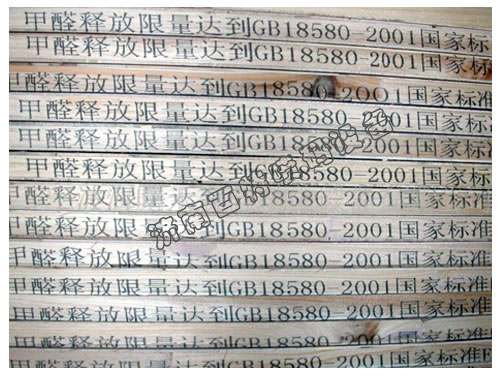 甲醛释放限量达到GB18580-2001国家标
甲醛释放限量达到GB18580-2001国家标
甲醛释放限量达到GB18580-2001国家标
甲醛释放限量达到GB18580-2001国家标
甲醛释放限量达到GB18580-2001国家标准
甲醛释放限量达到GB18580-2001国家标
甲醛释放限量达到GB18580-2001国家标准
甲醛释放限量达到GB18580-2001国家标准
甲醛释放限量达到GB18580-2001国家标准
甲醛释放限量达到GB18580-2001国家标准
甲醛释放限量达到GB18580-2001国家标准
甲醛释放限量达到GB18580-2001国家标准
甲醛释放限量达到GB18580-2001国家标准E